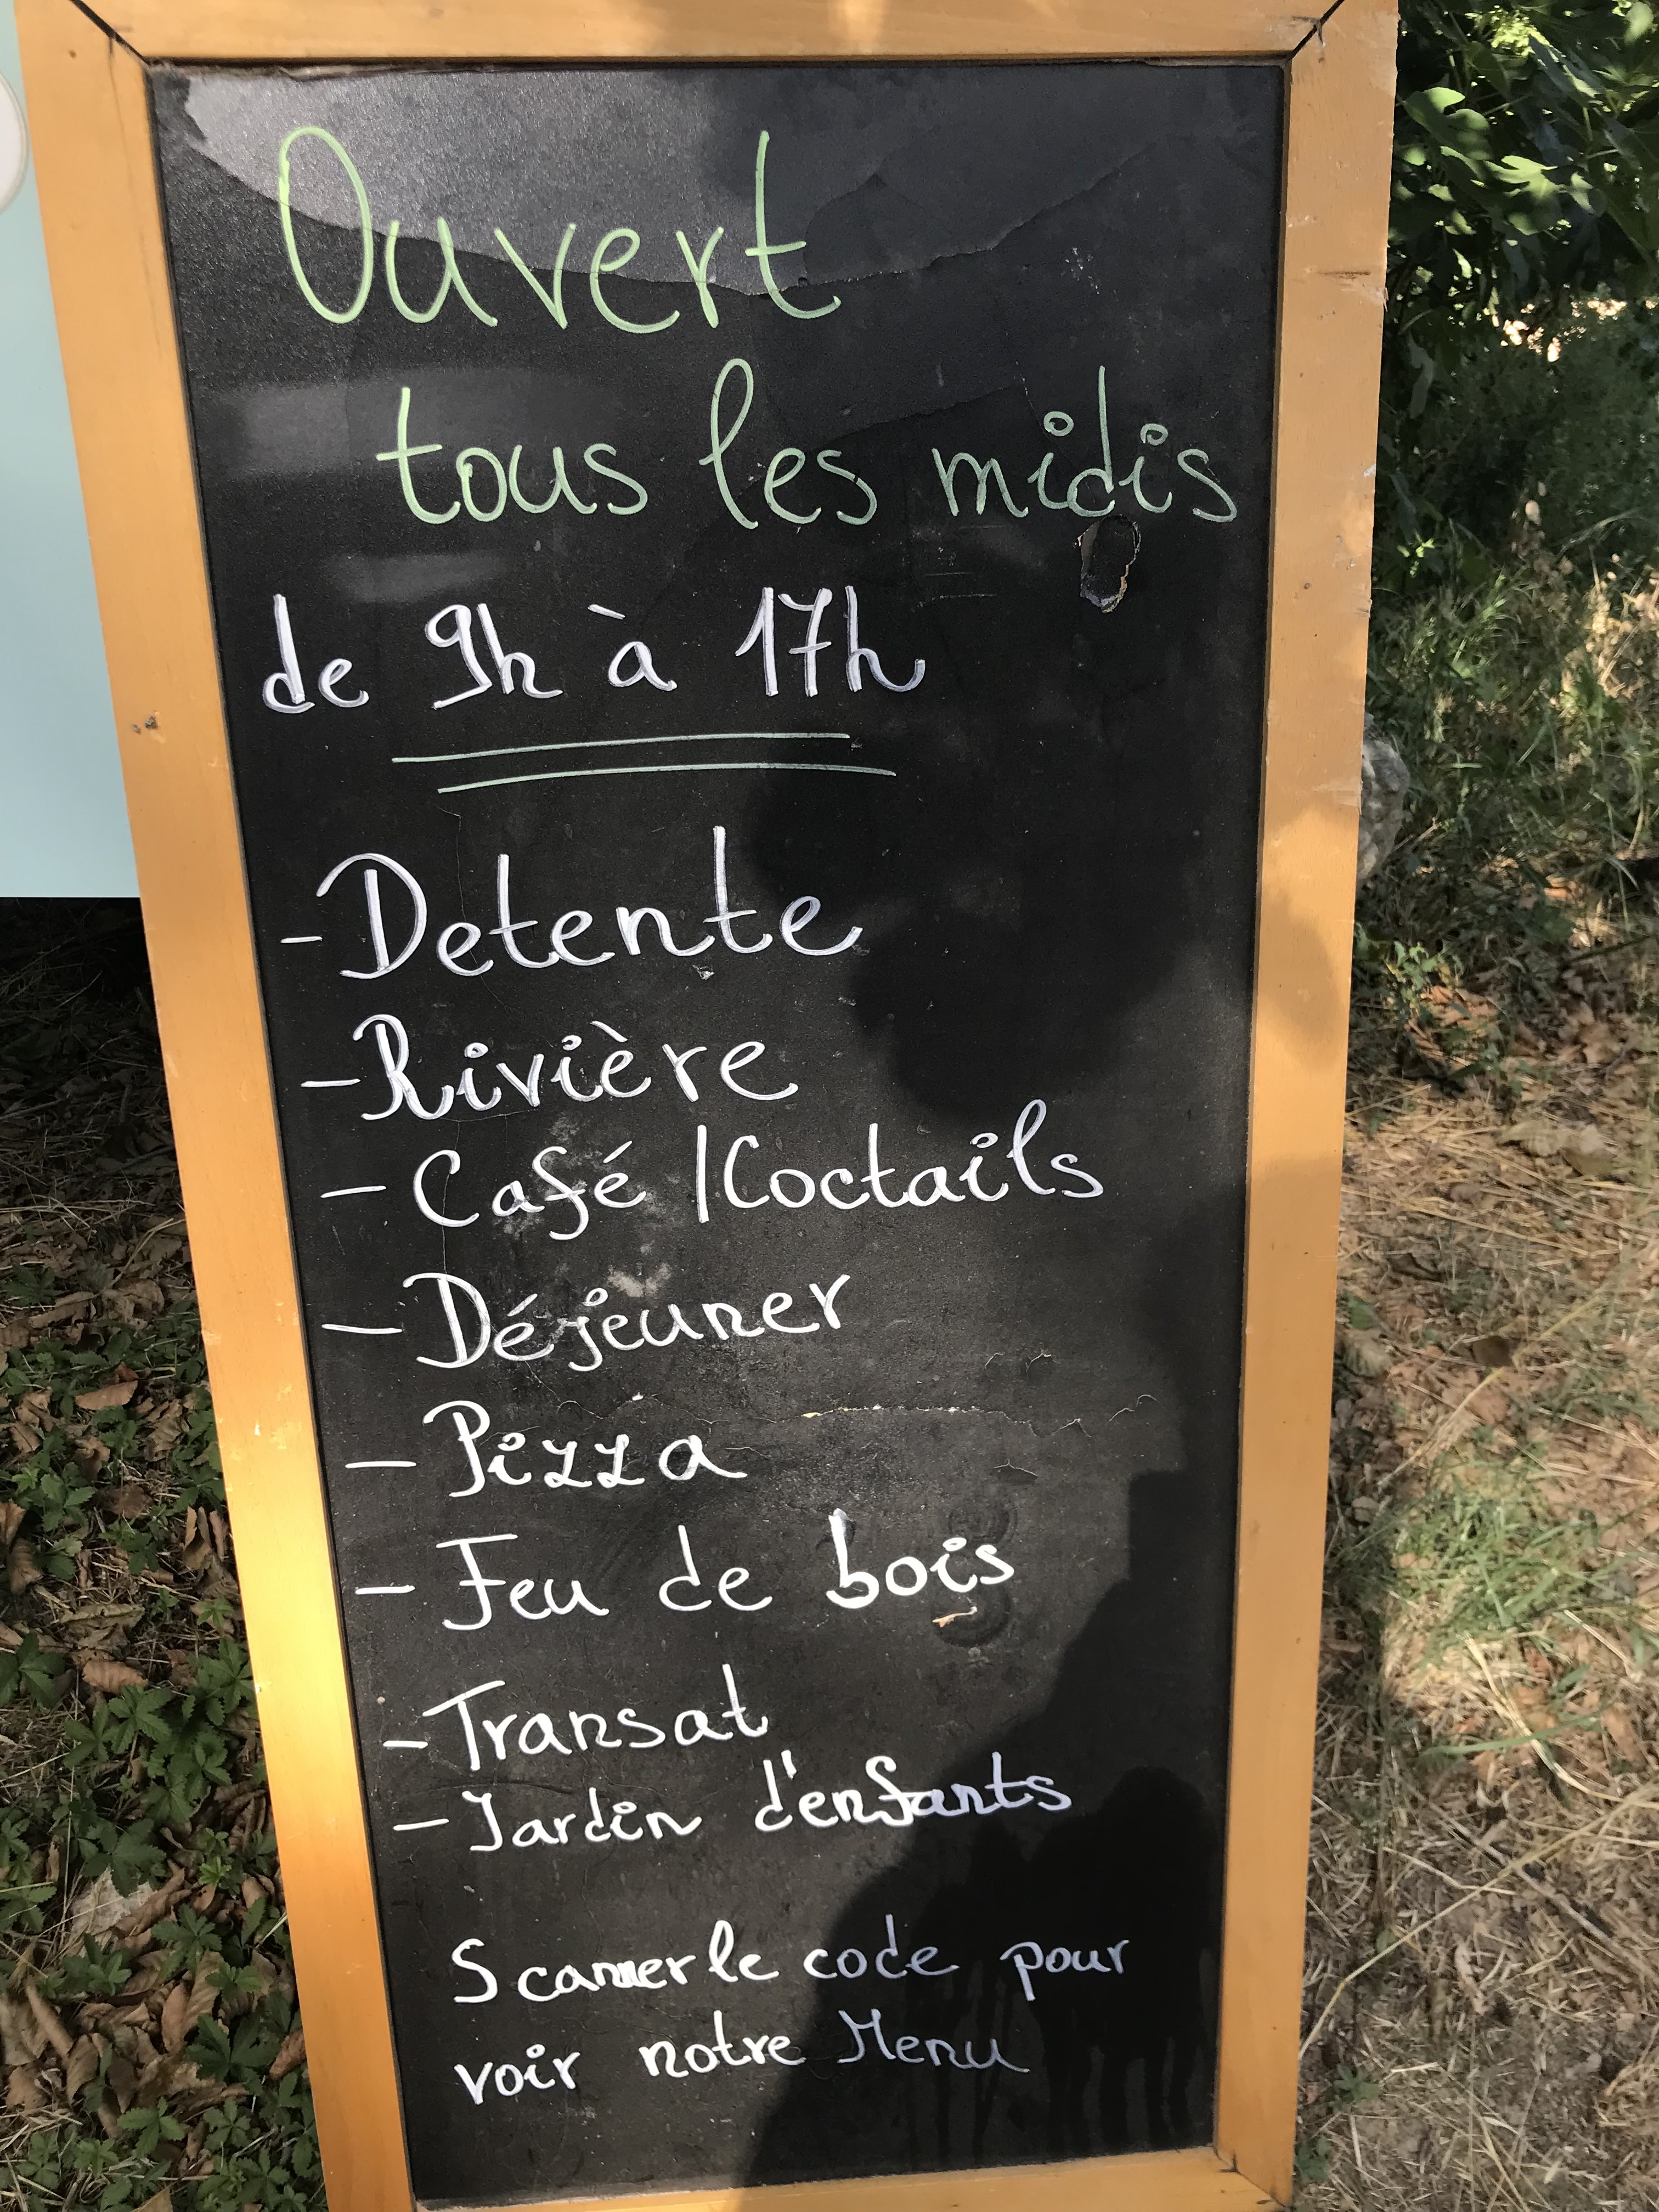 Ouvert
tous les midis
de 9h à 17h
- Detente
- Rivière
- Café / Coctails
- Déjeuner
- Pizza
- Feu de bois
- Transat
- Jardin d'enfants
Scanner le code pour
voir notre Menu